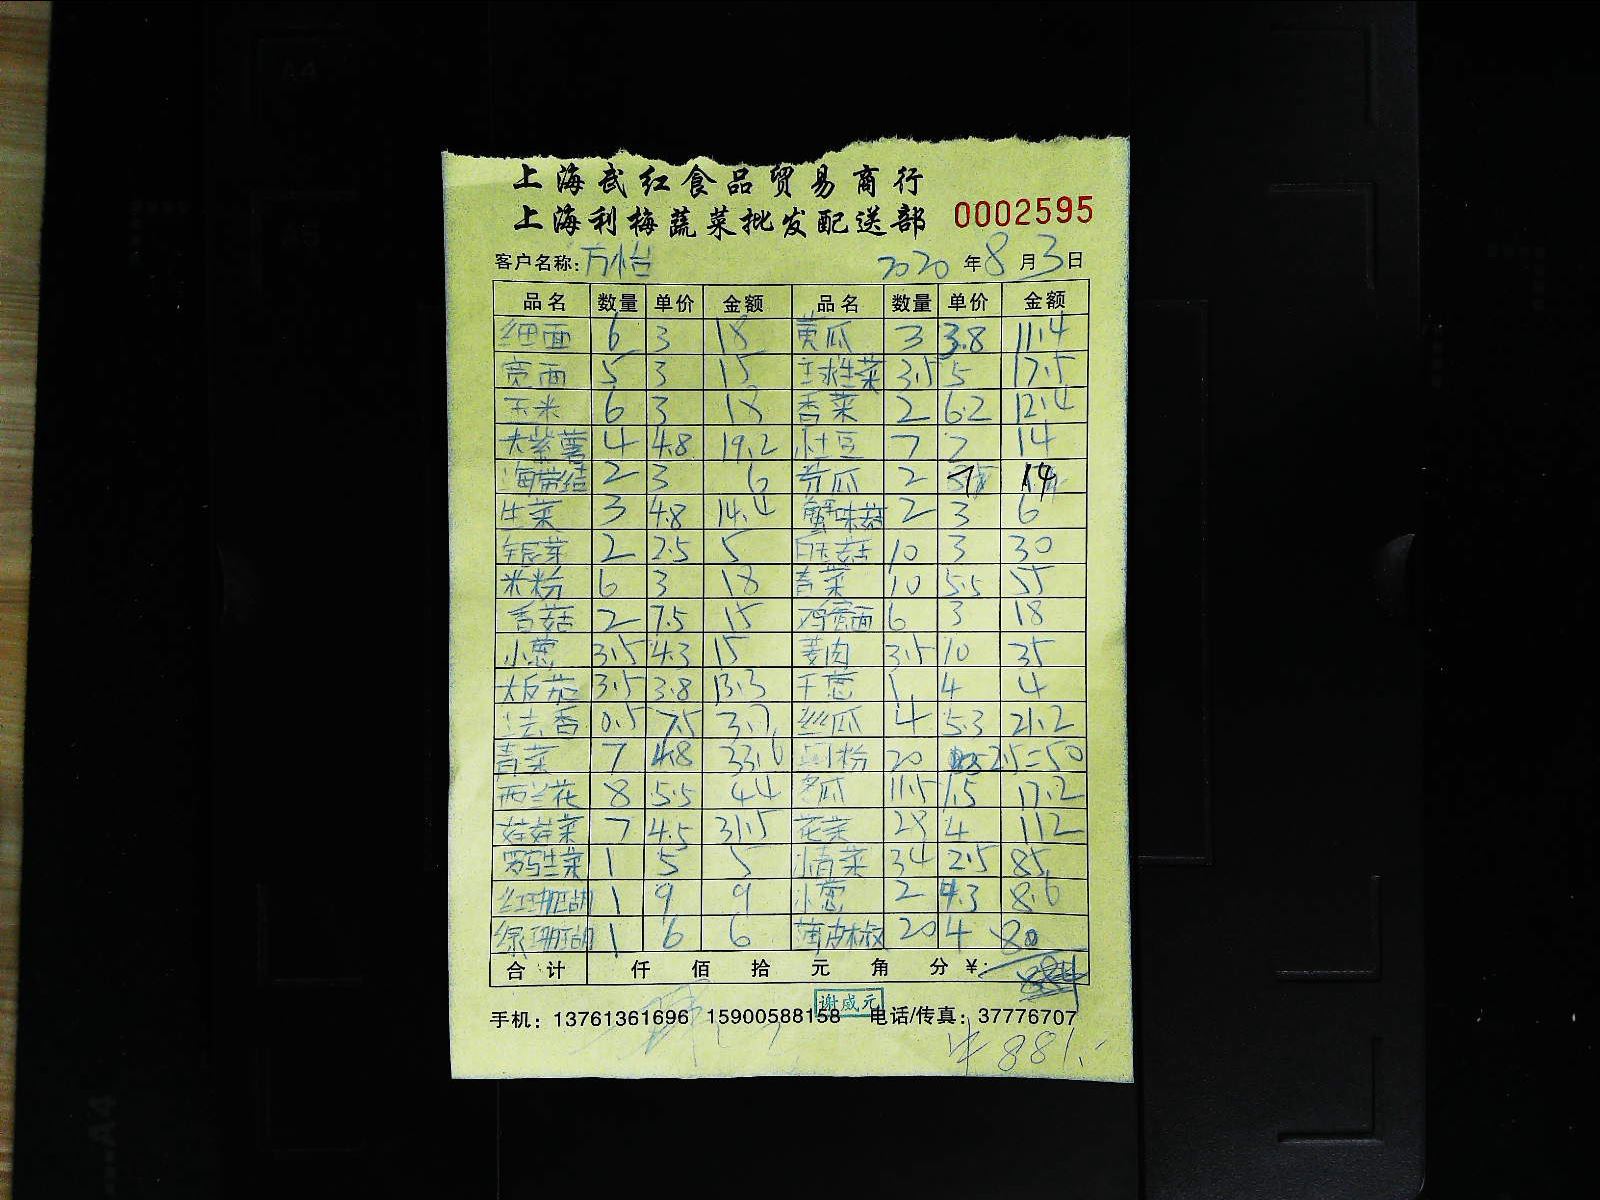 上海武红食品贸易商行
上海利梅蔬菜批发配送部 0002595
客户名称: 方怡 2020年8月3日
品名 数量 单价 金额 品名 数量 单价 金额
细面 6 3 18 黄瓜 3 3.8 11.4
宽面 5 3 15 球生菜 3.5 5 17.5
玉米 6 3 18 香菜 2 6.2 12.4
大紫薯 4 4.8 19.2 土豆 7 2 14
海带结 2 3 6 苦瓜 2 7 14
生菜 3 4.8 14.4 蟹味菇 2 3 6
银芽 2 2.5 5 白玉菇 10 3 30
米粉 6 3 18 青菜 10 5.5 55
香菇 2 7.5 15 鸡蛋面 6 3 18
小葱 3.5 4.3 15 姜肉 3.5 10 35
大番茄 3.5 3.8 13.3 干葱 1 4 4
法香 0.5 7.5 3.7 丝瓜 4 5.3 21.2
青菜 7 4.8 33.6 粉 20 2.5=50
西兰花 8 5.5 44 冬瓜 11.5 1.5 17.2
娃娃菜 7 4.5 31.5 花菜 28 4 112
罗马生菜 1 5 5 小青菜 34 2.5 85
红珊瑚 1 9 9 小葱 2 4.3 8.6
绿珊瑚 1 6 6 薄皮椒 20 4 80
合计 仟 佰 拾 元 角 分 ¥:
谢威元
手机: 13761361696 15900588158 电话/传真: 37776707
881.-